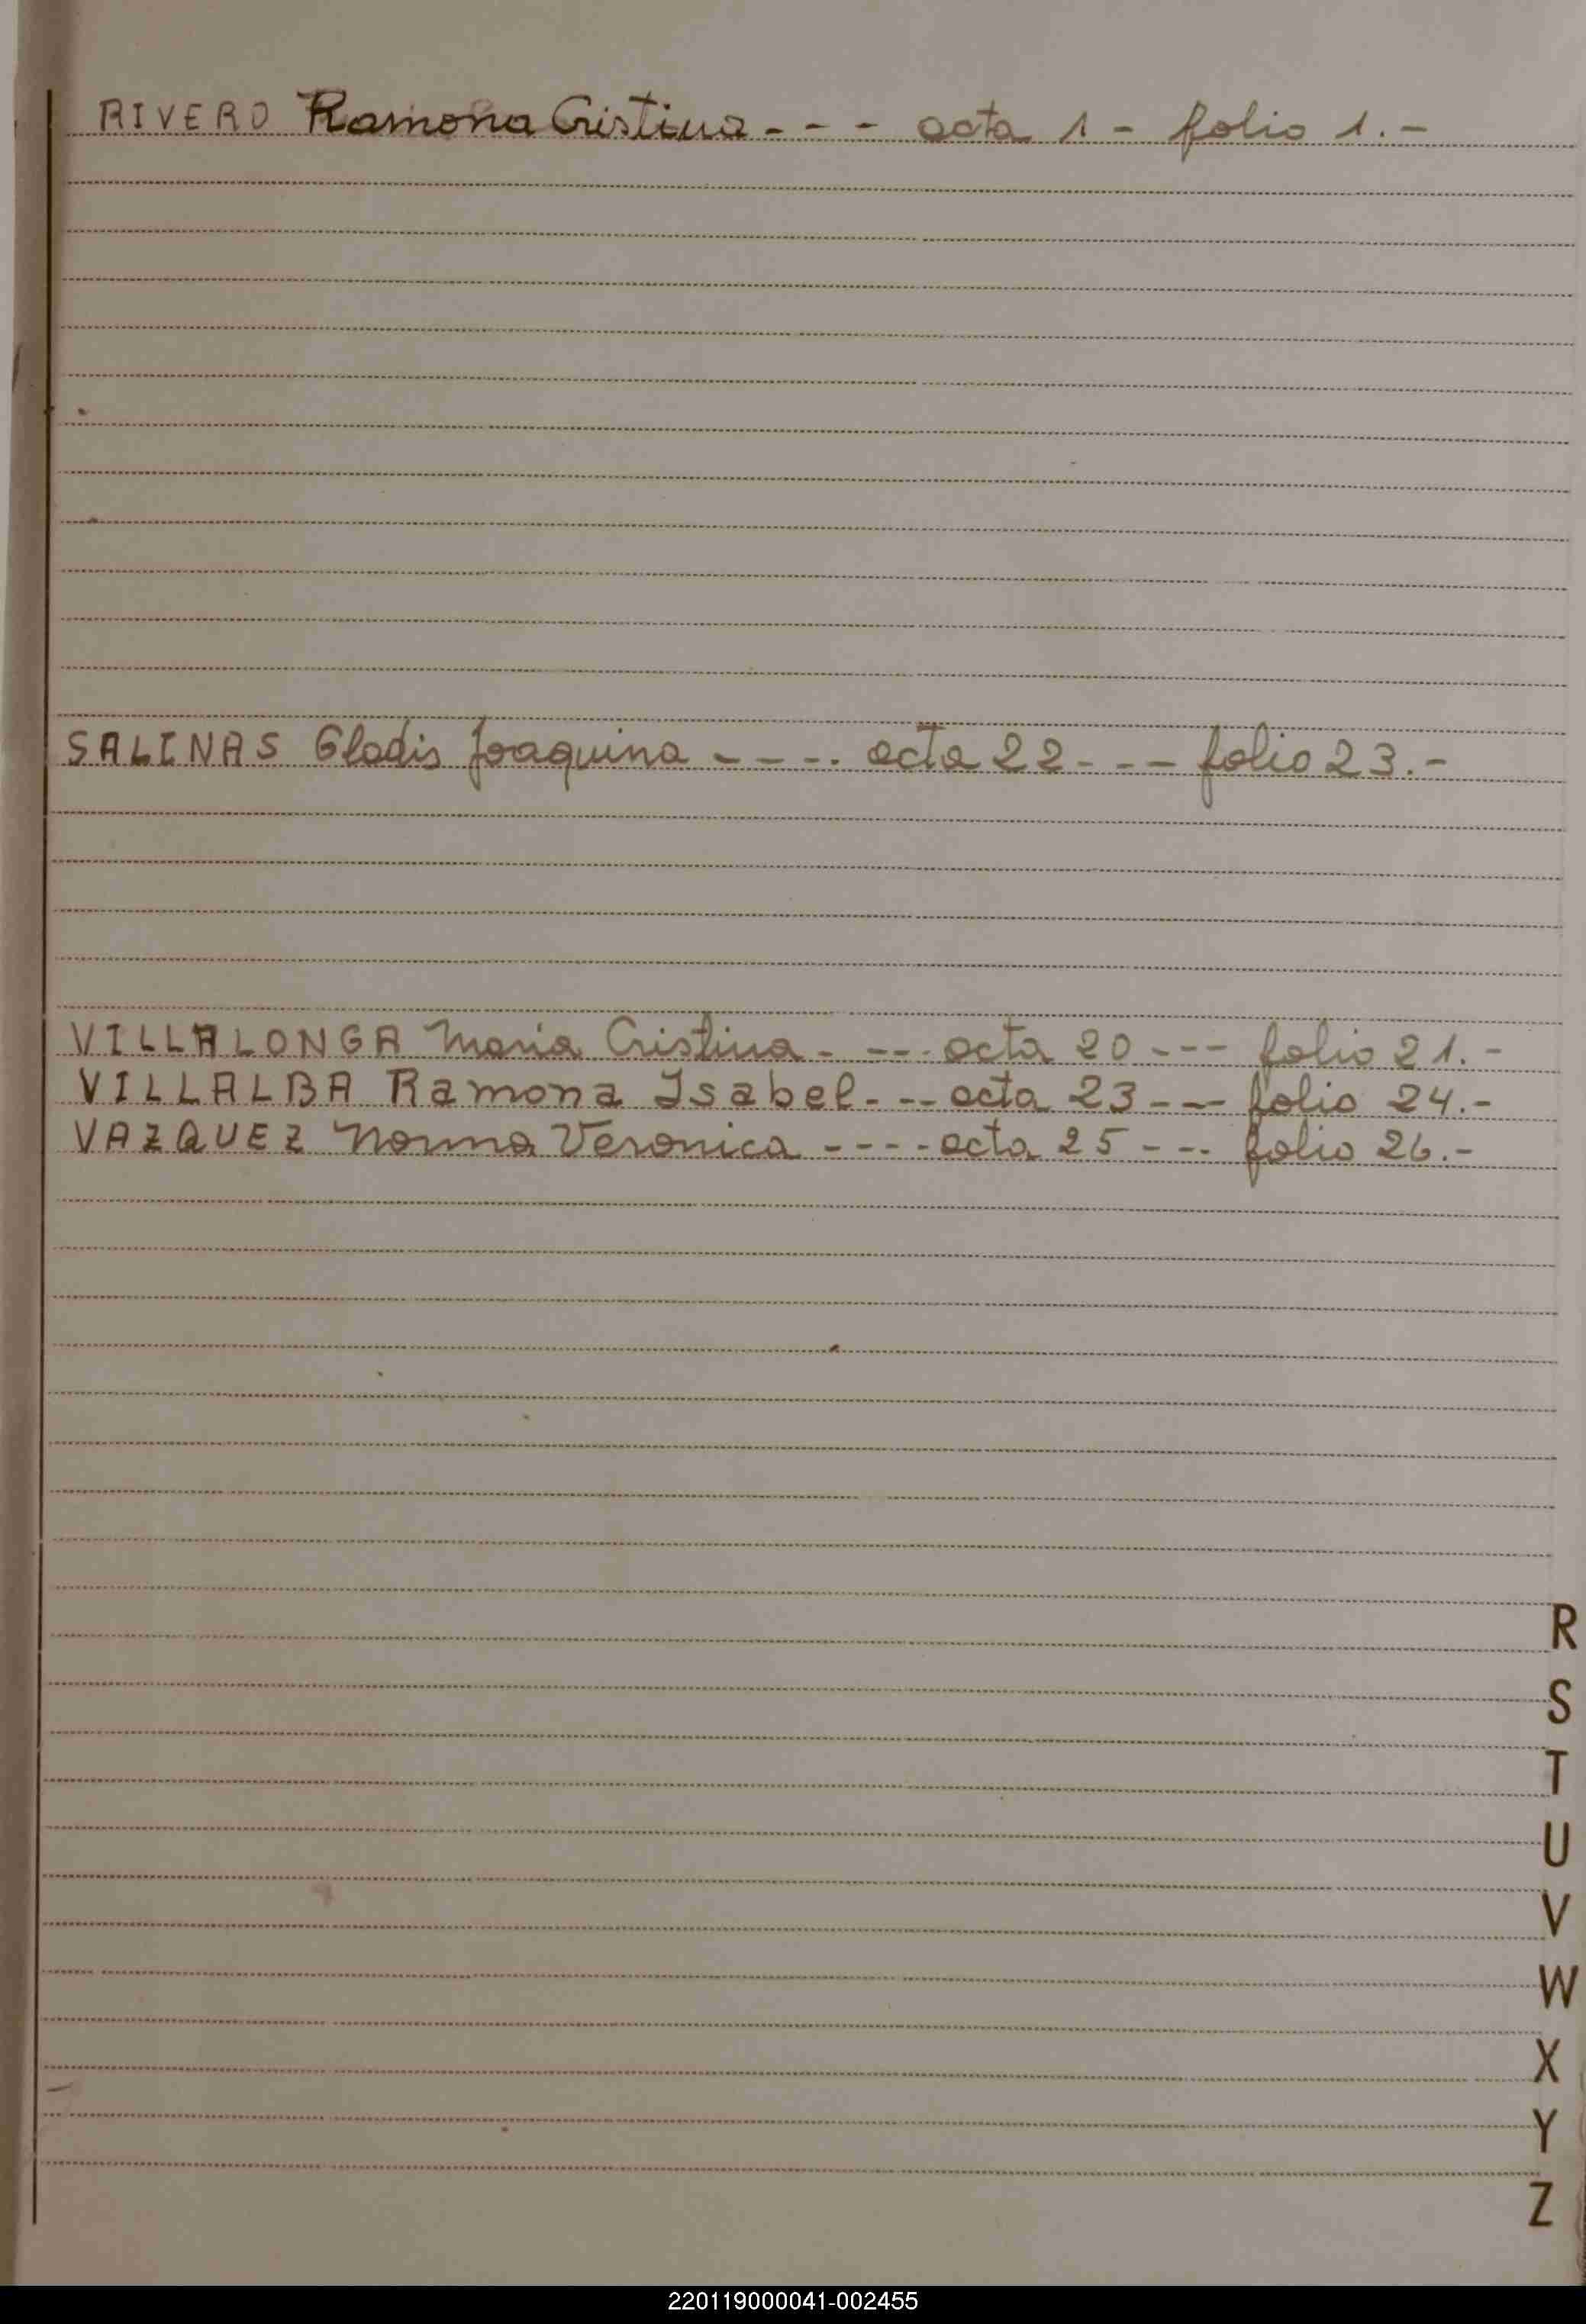 RIVERO Ramona Cristina - - - acta 1 - folio 1.-
SALINAS Gladis Joaquina - - - - acta 22 - - - folio 23.-
VILLALONGA Maria Cristina - - - - acta 20 - - - folio 21.-
VILLALBA Ramona Isabel - - - acta 23 - - - folio 24.-
VAZQUEZ Norma Veronica - - - - acta 25 - - - folio 26.-
R
S
T
U
V
W
X
Y
Z
220119000041-002455